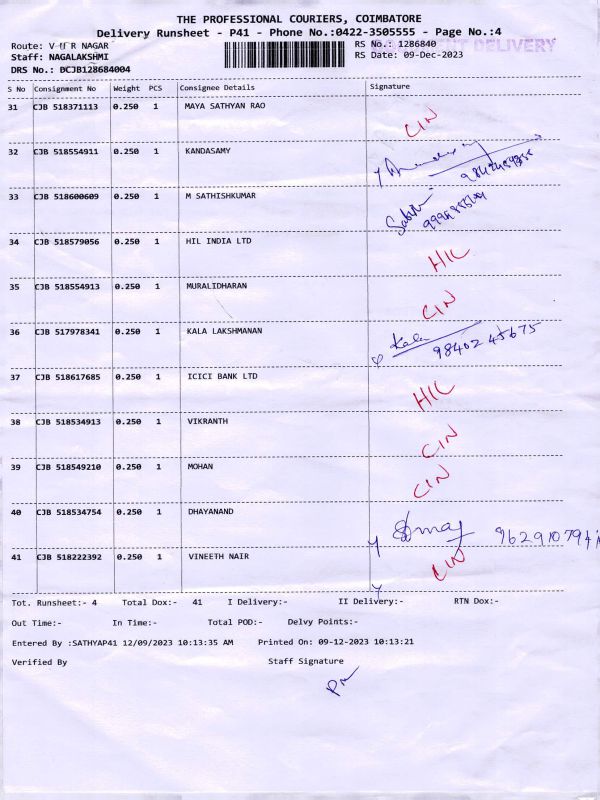 THE PROFESSIONAL COURIERS, COIMBATORE
Delivery Runsheet - P41 - Phone No.:0422-3505555 - Page No.:4
Route: V R NAGAR RS No.: 1286840 DELIVERY
Staff: NAGALAKSHMI RS Date: 09-Dec-2023
DRS No.: DCJB128684004
S No Consignment No Weight PCS Consignee Details Signature
31 CJB 518371113 0.250 1 MAYA SATHYAN RAO CIN
32 CJB 518554911 0.250 1 KANDASAMY
33 CJB 518600609 0.250 1 M SATHISHKUMAR
34 CJB 518579056 0.250 1 HIL INDIA LTD HIL
35 CJB 518554913 0.250 1 MURALIDHARAN CIN
36 CJB 517978341 0.250 1 KALA LAKSHMANAN Kala 98402 45675
37 CJB 518617685 0.250 1 ICICI BANK LTD HIL
38 CJB 518534913 0.250 1 VIKRANTH CIN
39 CJB 518549210 0.250 1 MOHAN CIN
40 CJB 518534754 0.250 1 DHAYANAND
41 CJB 518222392 0.250 1 VINEETH NAIR CIN
Tot. Runsheet:- 4 Total Dox:- 41 I Delivery:- II Delivery:- RTN Dox:-
Out Time:- In Time:- Total POD:- Delvy Points:-
Entered By :SATHYAP41 12/09/2023 10:13:35 AM Printed On: 09-12-2023 10:13:21
Verified By Staff Signature